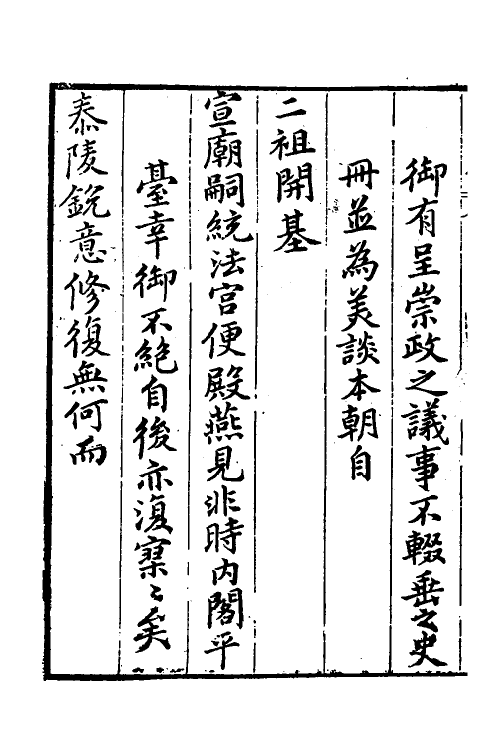 御有呈崇政之議事不輟垂之史
冊並為美談本朝自
二祖開基
宣廟嗣統法宮便殿燕見非時内閣平
臺幸御不絶自後亦復寥〻矣
泰陵銳意修復無何而